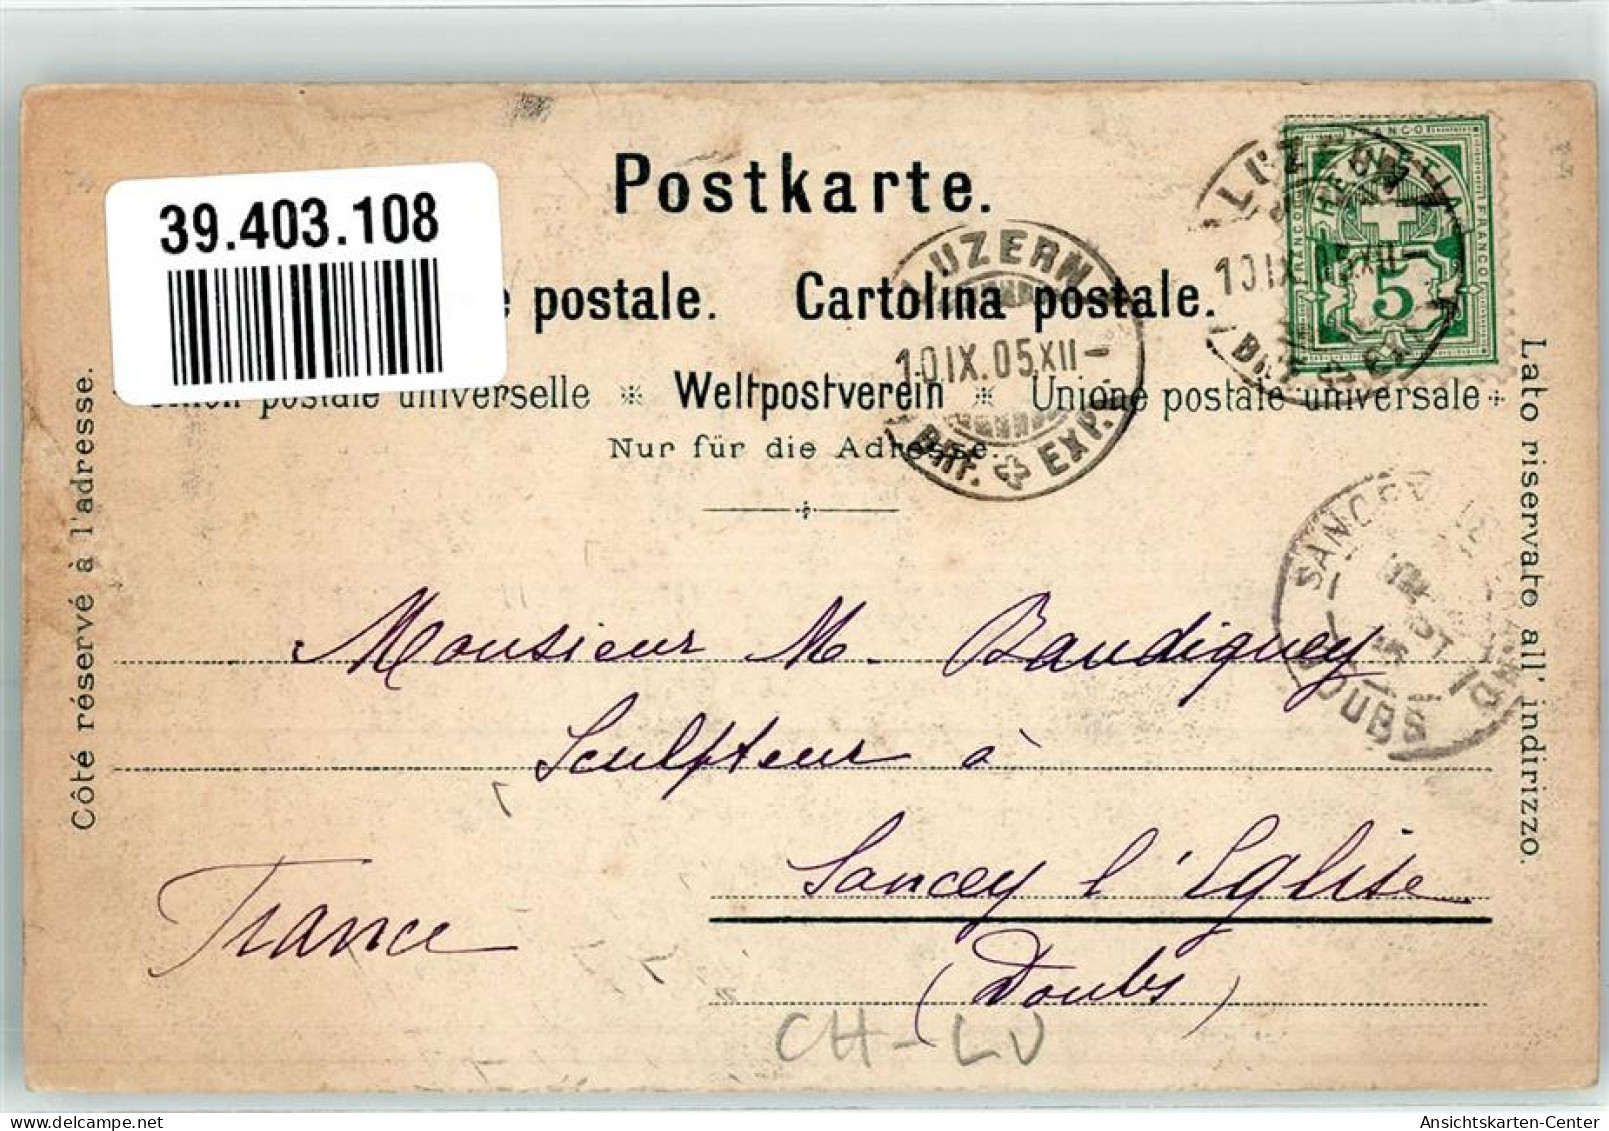 Postkarte.
39.403.108
postale. Cartolina postale.
Union postale universelle * Weltpostverein * Unione postale universale
Nur für die Adresse.
Côté réservé à l'adresse.
Lato riservato all' indirizzo.
FRANCO
5
LUZERN
10 IX
LUZERN
10 IX. 05 XII–
Bhf. EXP.
SANCEY
DOUBS
Monsieur M. Baudiquey
Sculpteur à
Sancey l'Eglise
France
(Doubs)
CH-LU
Ansichtskarten-Center